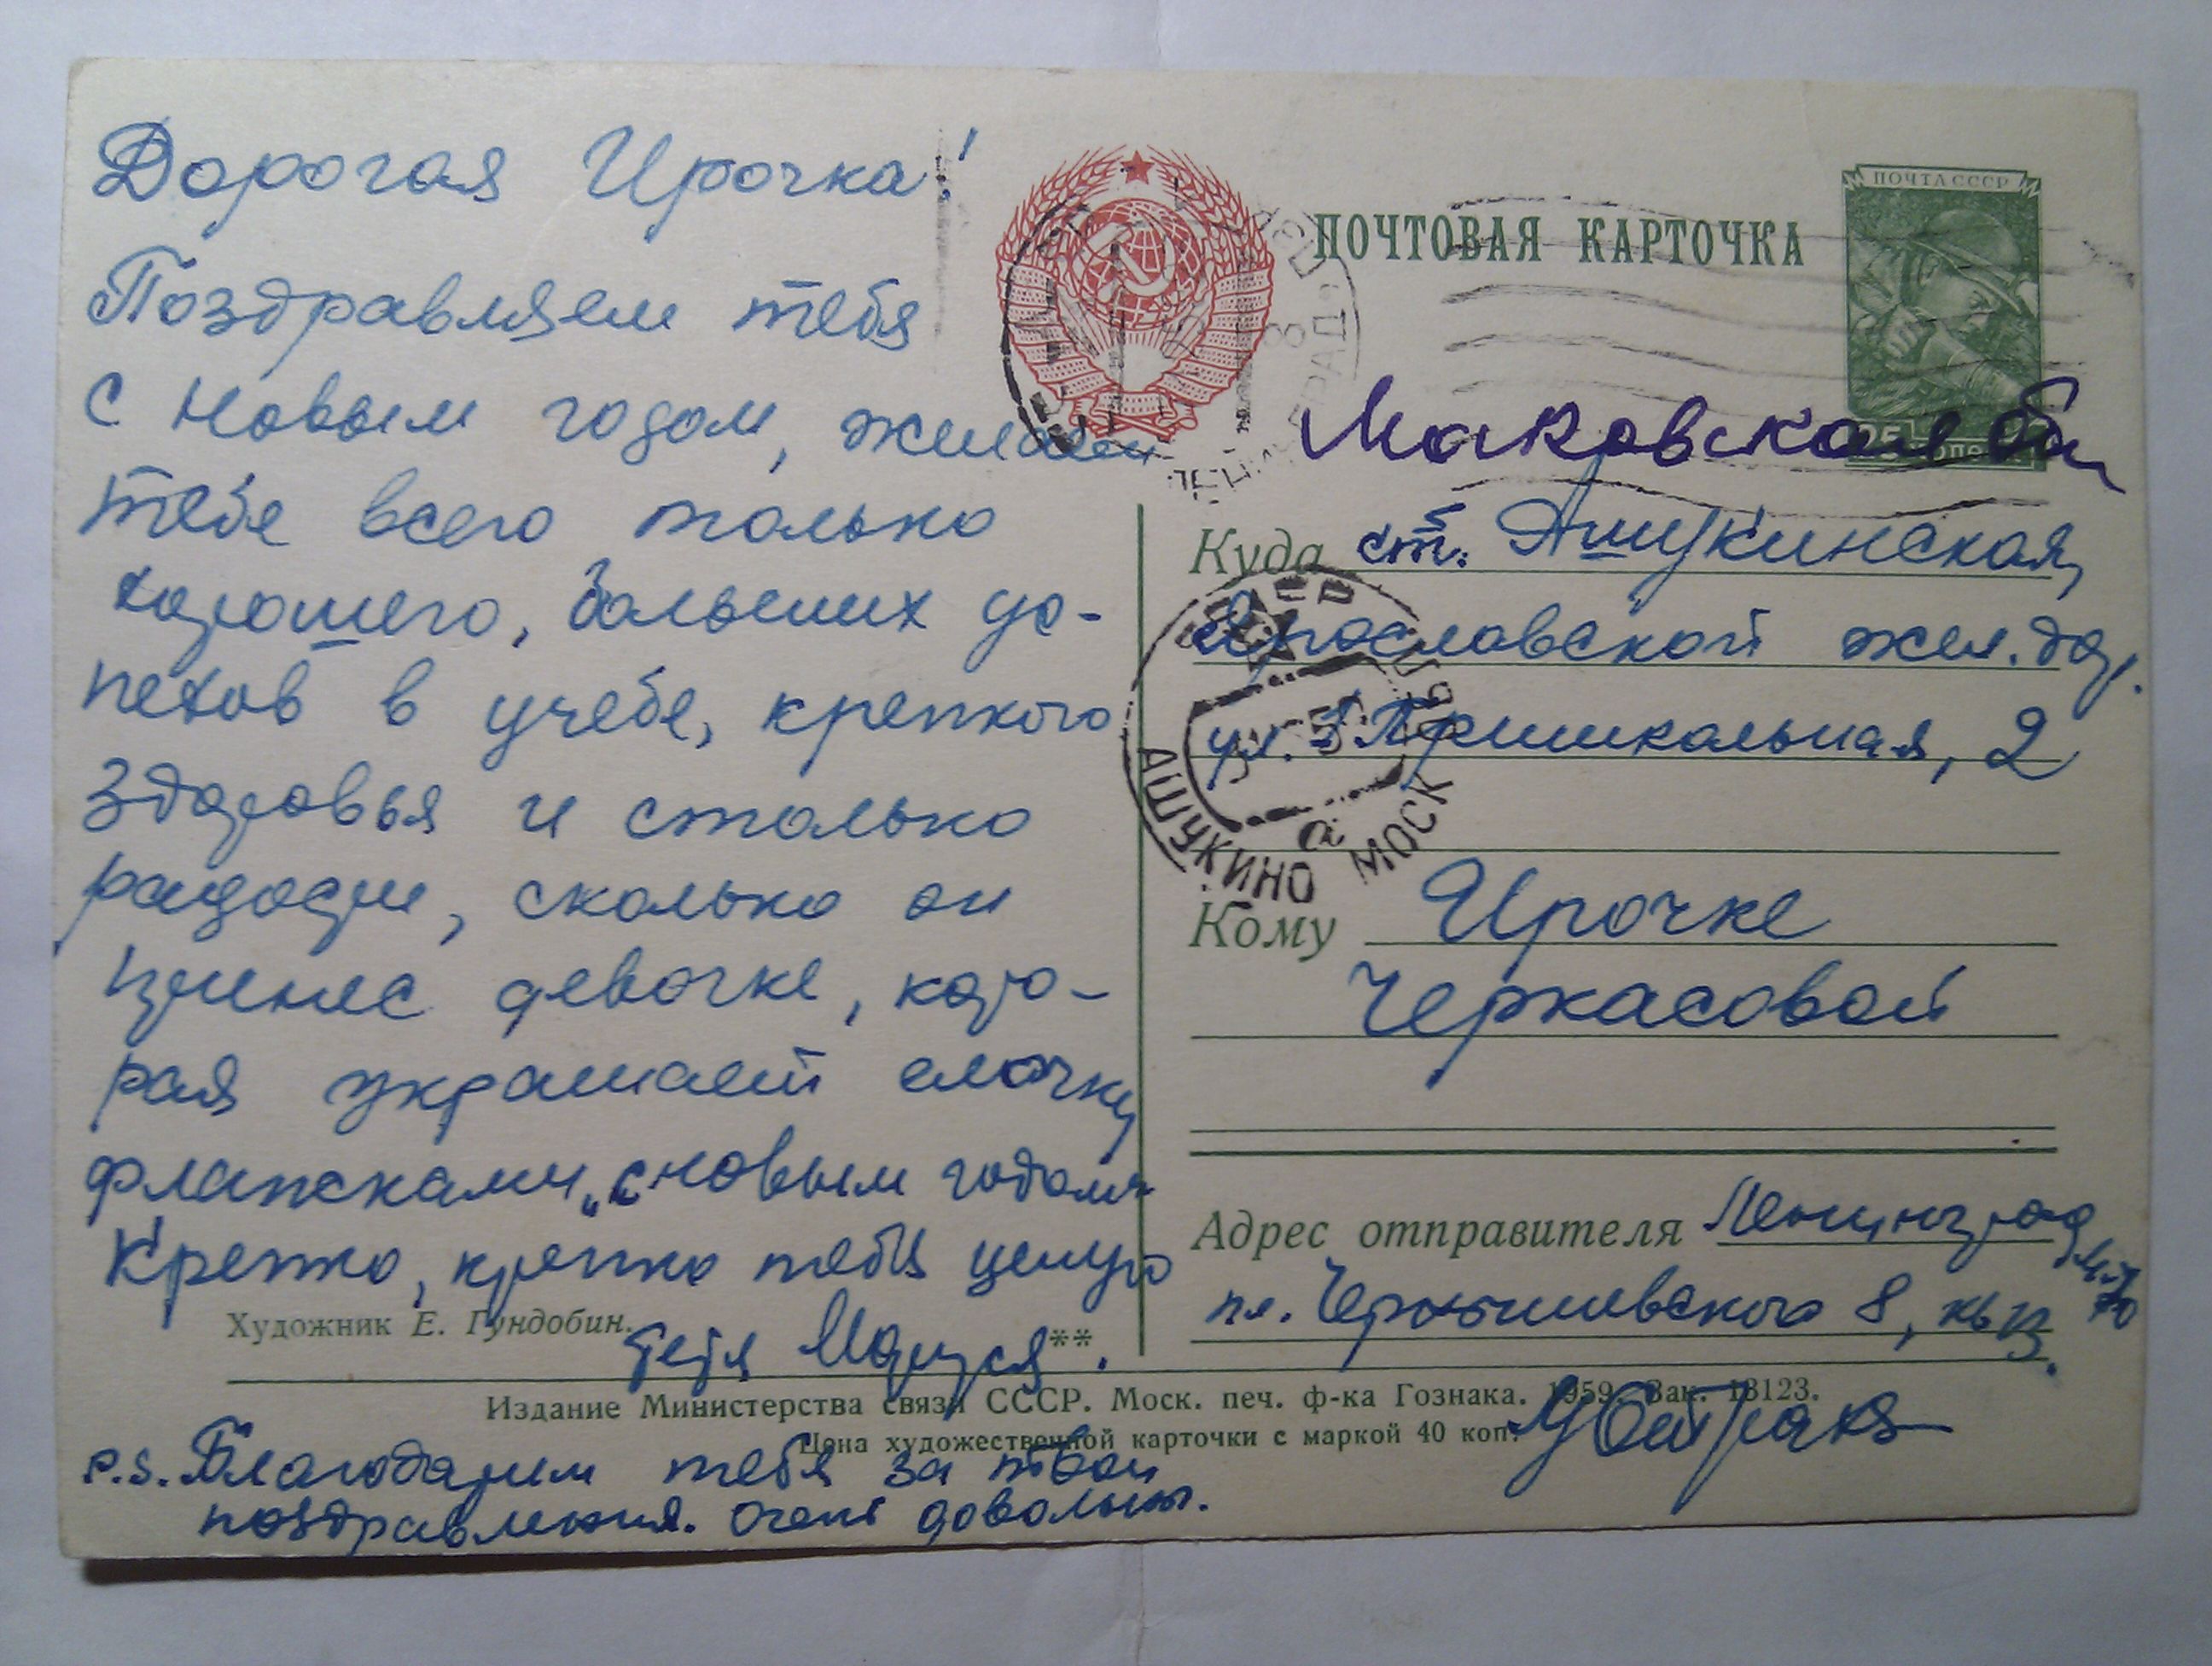 Дорогая Ирочка!
Поздравляем тебя
с Новым годом, желаем
тебе всего только
хорошего, больших ус-
пехов в учебе, крепкого
здоровья и столько
радости, сколько он
принес девочке, кото-
рая украшает елочку
флажками „с новым годом“
Крепко, крепко тебя целую
тетя Маруся.
Художник Е. Гундобин.
**
Издание Министерства связи СССР. Моск. печ. ф-ка Гознака. 1959. Зак. 13123.
Цена художественной карточки с маркой 40 коп.
P.S. Благодарим тебя за твои
поздравления. Очень довольны.
ПОЧТОВАЯ КАРТОЧКА
ПОЧТА СССР
25 копеек
Московская об
Куда ст. Ашукинская,
Ярославской жел. дор.
ул. 1 Пришкольная, 2
АШУКИНО МОСК
а
Кому Ирочке
Черкасовой
Адрес отправителя Ленинград
пл. Чернышевского 8, кв 13.